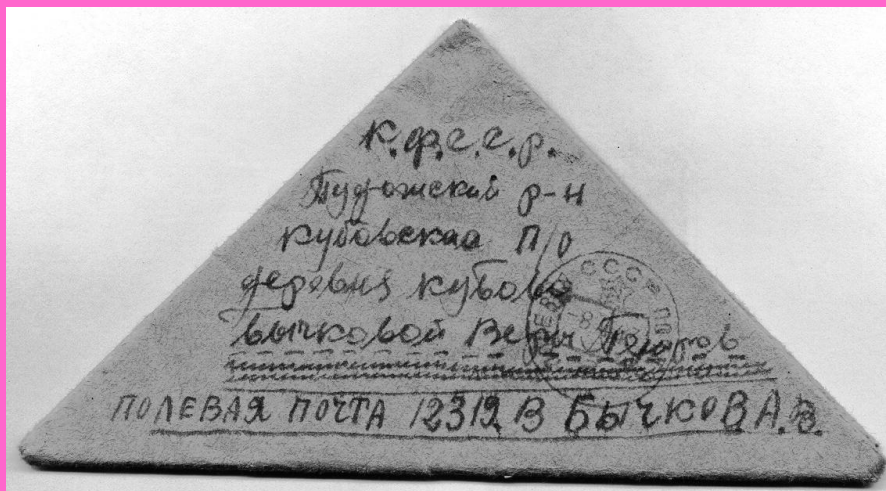 К.Ф.С.С.Р.
Пудожский р-н
Кубовская П/о
деревня Кубово
Бычковой Вере
ПОЛЕВАЯ ПОЧТА 12312 В БЫЧКОВ А.В.
СССР